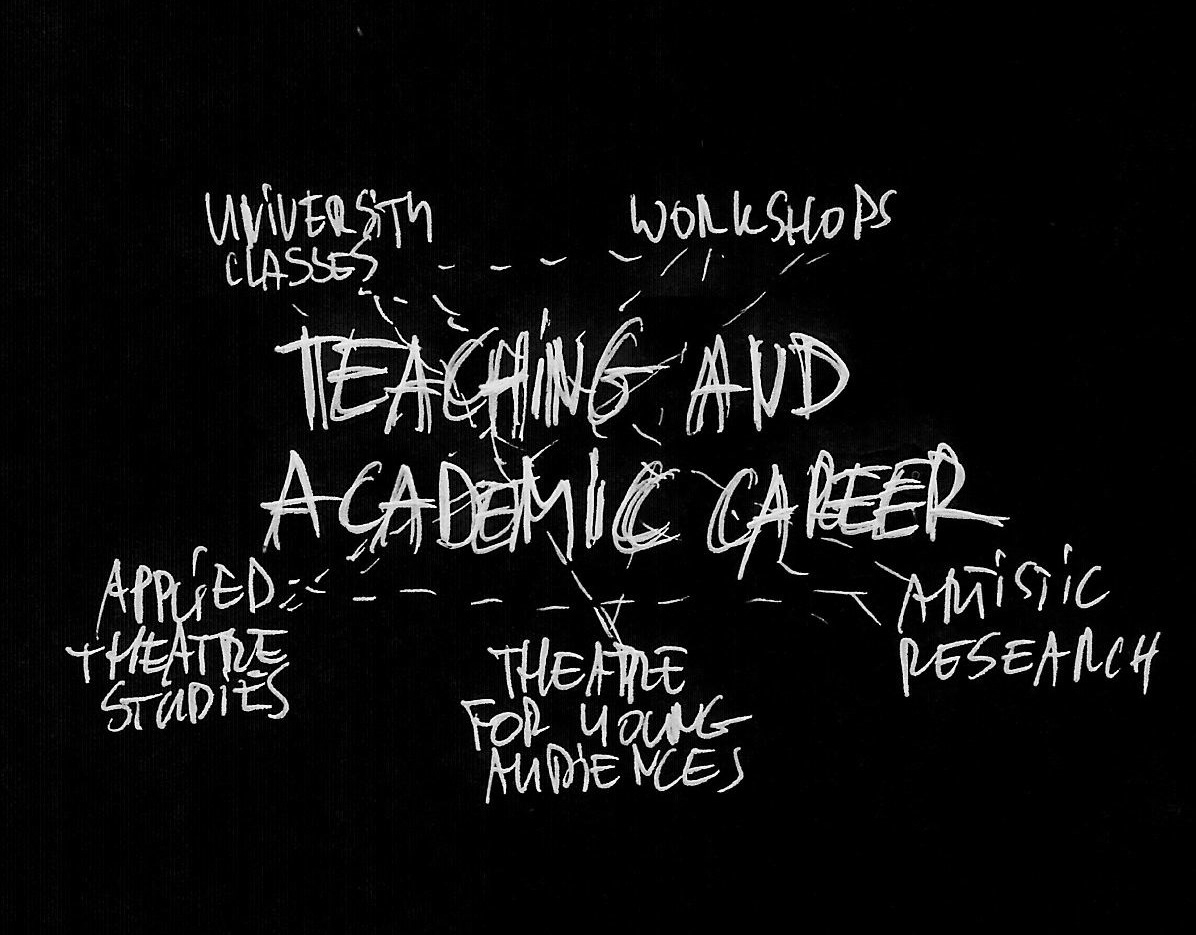 UNIVERSITY
CLASSES
WORKSHOPS
TEACHING AND
ACADEMIC CAREER
APPLIED
THEATRE
STUDIES
THEATRE
FOR YOUNG
AUDIENCES
ARTISTIC
RESEARCH